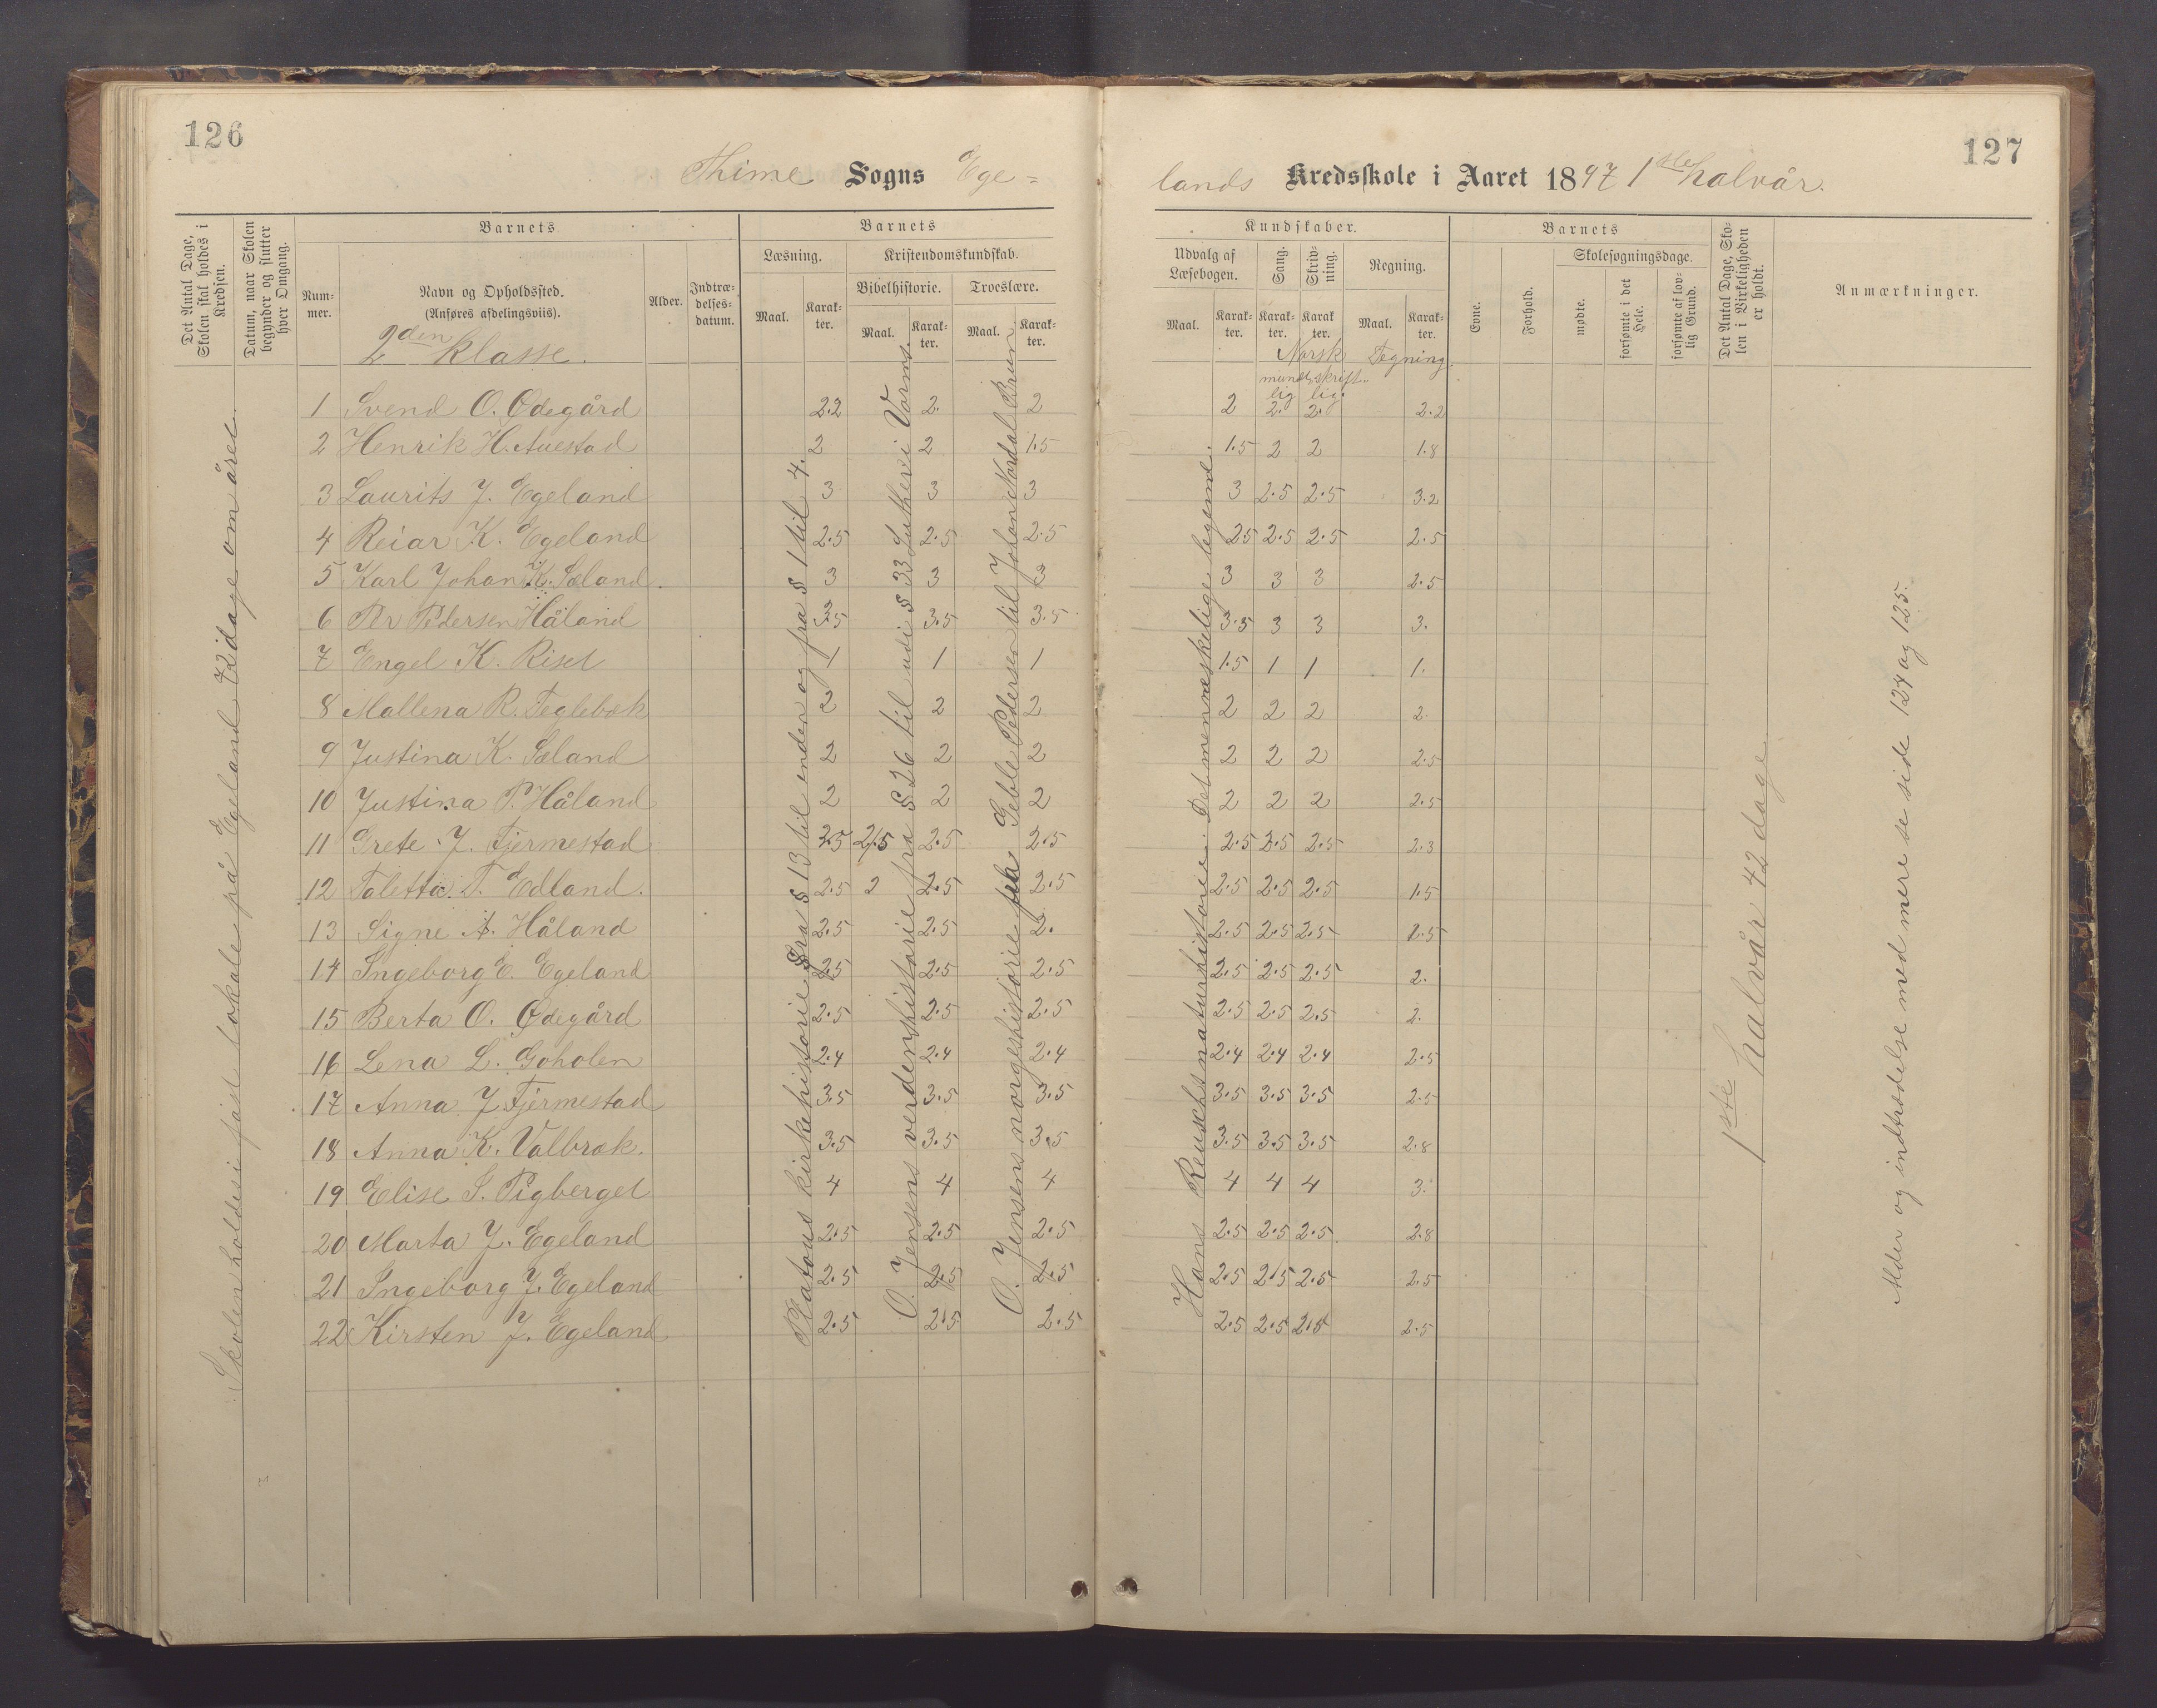 126
Thime Sogns Ege=
Det Antal Dage, Skolen skal holdes i Kredsen.
Datum, naar Skolen begynder og slutter hver Omgang.
Barnets
Nummer.
Navn og Opholdssted.
(Anføres afdelingsviis).
2den klasse.
Alder.
Indtrædelsesdatum.
Barnets
Læsning.
Maal.
Karakter.
Kristendomskundskab.
Bibelhistorie.
Maal.
Karakter.
Troeslære.
Maal.
Karakter.
1 Svend O. Ødegård 2.2 2. 2
2 Henrik H. Auestad 2 2 1.5
3 Laurits J. Egeland 3 3 3
4 Reiar K. Egeland 2.5 2.5 2.5
5 Karl Johan K. Sæland. 3 3 3
6 Per Pedersen Håland 3.5 3.5 3.5
7 Engel K. Riset 1 1 1
8 Mallena R. Teglebæk 2 2 2
9 Justina K. Sæland 2 2 2
10 Justina P. Håland 2 2 2
11 Grete J. Fjermestad 2.5 2.5 2.5 2.5
12 Taletta T. Edland. 2.5 2 2.5 2.5
13 Signe A. Håland 2.5 2.5 2.
14 Ingeborg E. Egeland 2.5 2.5 2.5
15 Berta O. Ødegård 2.5 2.5 2.5
16 Lena L. Goholen 2.4 2.4 2.4
17 Anna J. Fjermestad 3.5 3.5 3.5
18 Anna K. Valbræk. 3.5 3.5 3.5
19 Elise S. Tigberget 4 4 4
20 Marta J. Egeland 2.5 2.5 2.5
21 Ingeborg J. Egeland 2.5 2.5 2.5
22 Kirsten J. Egeland 2.5 2.5 2.5
Skolen holdes i fast lokale på Egeland 72 dage om året.
Platous kirkehistorie fra § 13 til enden og fra § 1 til 4.
O. Jensens verdenshistorie fra § 26 til udi § 33 Luther i Vorms.
O. Jensens norgeshistorie fra Geble Pedersen til Johan Nordal Brun
127
lands Kredsskole i Aaret 1897 1ste halvår.
Kundskaber.
Udvalg af Læsebogen.
Maal.
Karakter.
Sang.
Karakter.
Skrivning.
Karakter.
Regning.
Maal.
Karakter.
Norsk
mundtlig
skriftlig.
Tegning.
Barnets
Evne.
Forhold.
Skolesøgningsdage.
mødte.
forsømte i det Hele.
forsømte af lovlig Grund.
Det Antal Dage, Skolen i Virkeligheden er holdt.
Anmærkninger.
2 2. 2. 2.2
1.5 2 2 1.8
3 2.5 2.5 3.2
2.5 2.5 2.5 2.5
3 3 3 2.5
3.5 3 3 3.
1.5 1 1 1.
2 2 2 2.
2 2 2 2.5
2 2 2 2.5
2.5 2.5 2.5 2.3
2.5 2.5 2.5 1.5
2.5 2.5 2.5 2.5
2.5 2.5 2.5 2.
2.5 2.5 2.5 2.
2.4 2.4 2.4 2.5
3.5 3.5 3.5 2.5
3.5 3.5 3.5 2.8
4 4 4 3.
2.5 2.5 2.5 2.8
2.5 2.5 2.5 2.5
2.5 2.5 2.5 2.5
Hans Reuschs naturhistorie. Det menneskelige legeme.
1ste halvår 42 dage.
Alder og indtrædelse med mere se side 124 og 125.